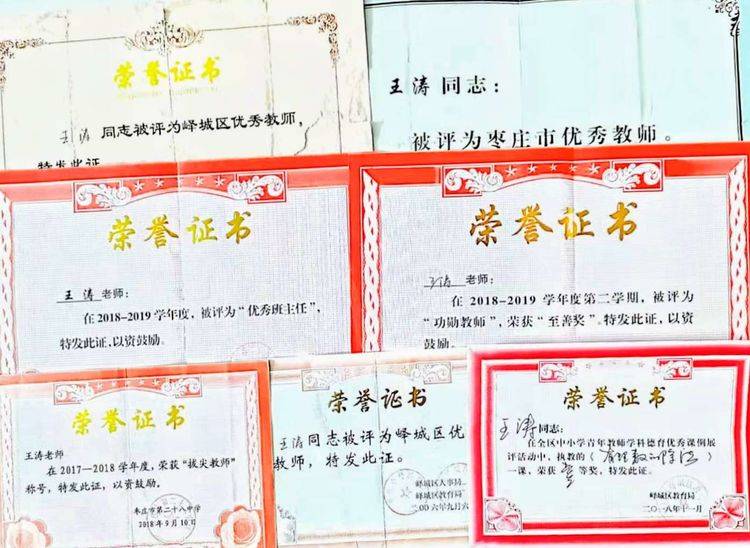 荣誉证书
王涛同志被评为峄城区优秀教师，
特发此证
王涛同志：
被评为枣庄市优秀教师。
荣誉证书
王涛老师：
在2018-2019学年度，被评为“优秀班主任”，
特发此证，以资鼓励。
荣誉证书
王涛老师：
在2018-2019学年度第二学期，被评为
“功勋教师”，荣获“至善奖”。特发此证，以资
鼓励。
荣誉证书
王涛老师
在2017-2018学年度，荣获“拔尖教师”
称号，特发此证，以资鼓励。
枣庄市第二十八中学
2018年9月10日
荣誉证书
王涛同志被评为峄城区优
教师，特发此证。
峄城区人事局
峄城区教育局
二00六年九月六
荣誉证书
王涛同志：
在全区中小学青年教师学科德育优秀课例展
评活动中，执教的《有理数的》
一课，荣获等奖，特发此证。
峄城区教育局
二〇一八年十一月